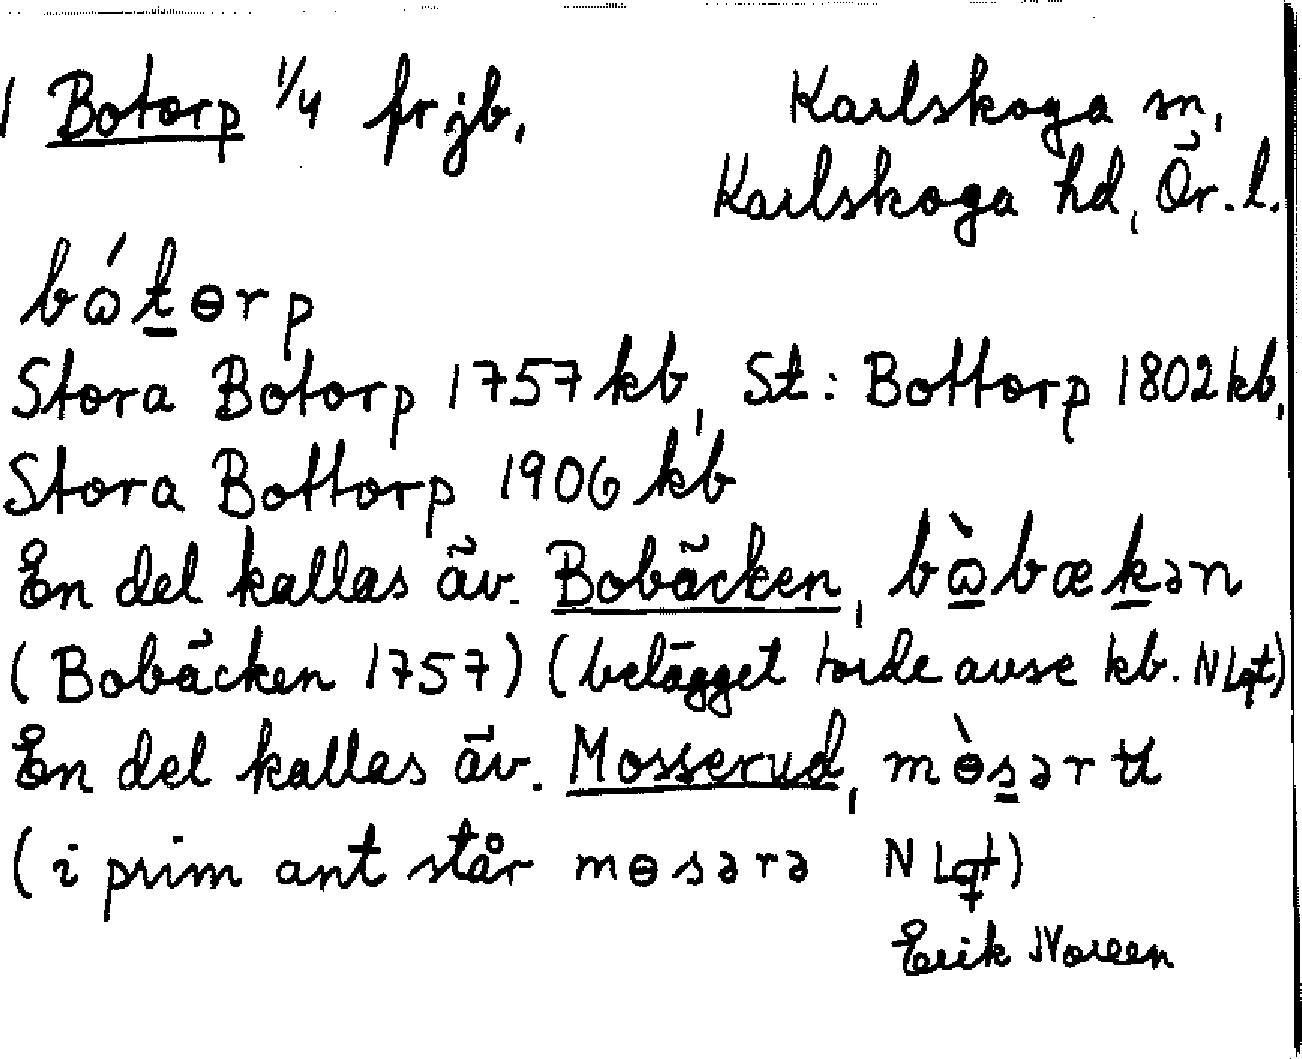 1 Botorp 1/4 frjb. Karlskoga sn,
Karlskoga hd, Ör. l.
bɷ́t̲ɵrp
Stora Botorp 1757 kb, St: Bottorp 1802 kb,
Stora Bottorp 1906 kb
En del kallas äv. Bobäcken, bɷ̲̀bæk̲ən
(Bobäcken 1757) (belägget torde avse kb. NLgt)
En del kallas äv. Mosserud, mɵ̀s̲ərʉ
(i prim ant står mɵsərə NLgt)
Erik Noreen